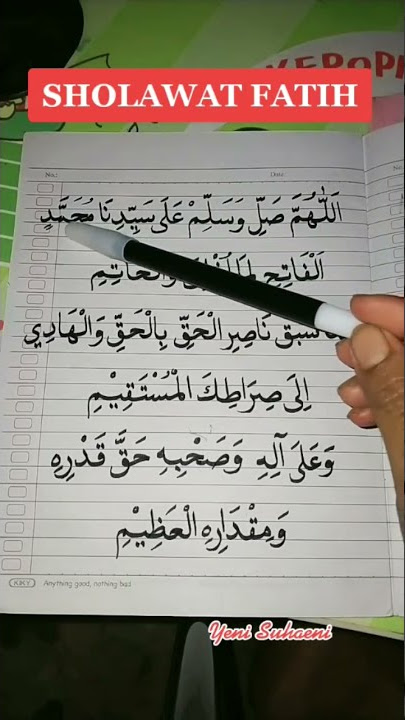 SHOLAWAT FATIH
No.: Date:
اَللّٰهُمَّ صَلِّ وَسَلِّمْ عَلَى سَيِّدِنَا مُحَمَّدٍ
اَلْفَاتِحِ وَالْخَاتِمِ
سَبَقَ نَاصِرِ الْحَقِّ بِالْحَقِّ وَالْهَادِي
اِلَى صِرَاطِكَ الْمُسْتَقِيْمِ
وَعَلَى آلِهِ وَصَحْبِهِ حَقَّ قَدْرِهِ
وَمِقْدَارِهِ الْعَظِيْمِ
KKY Anything good, nothing bad.
Yeni Suhaeni